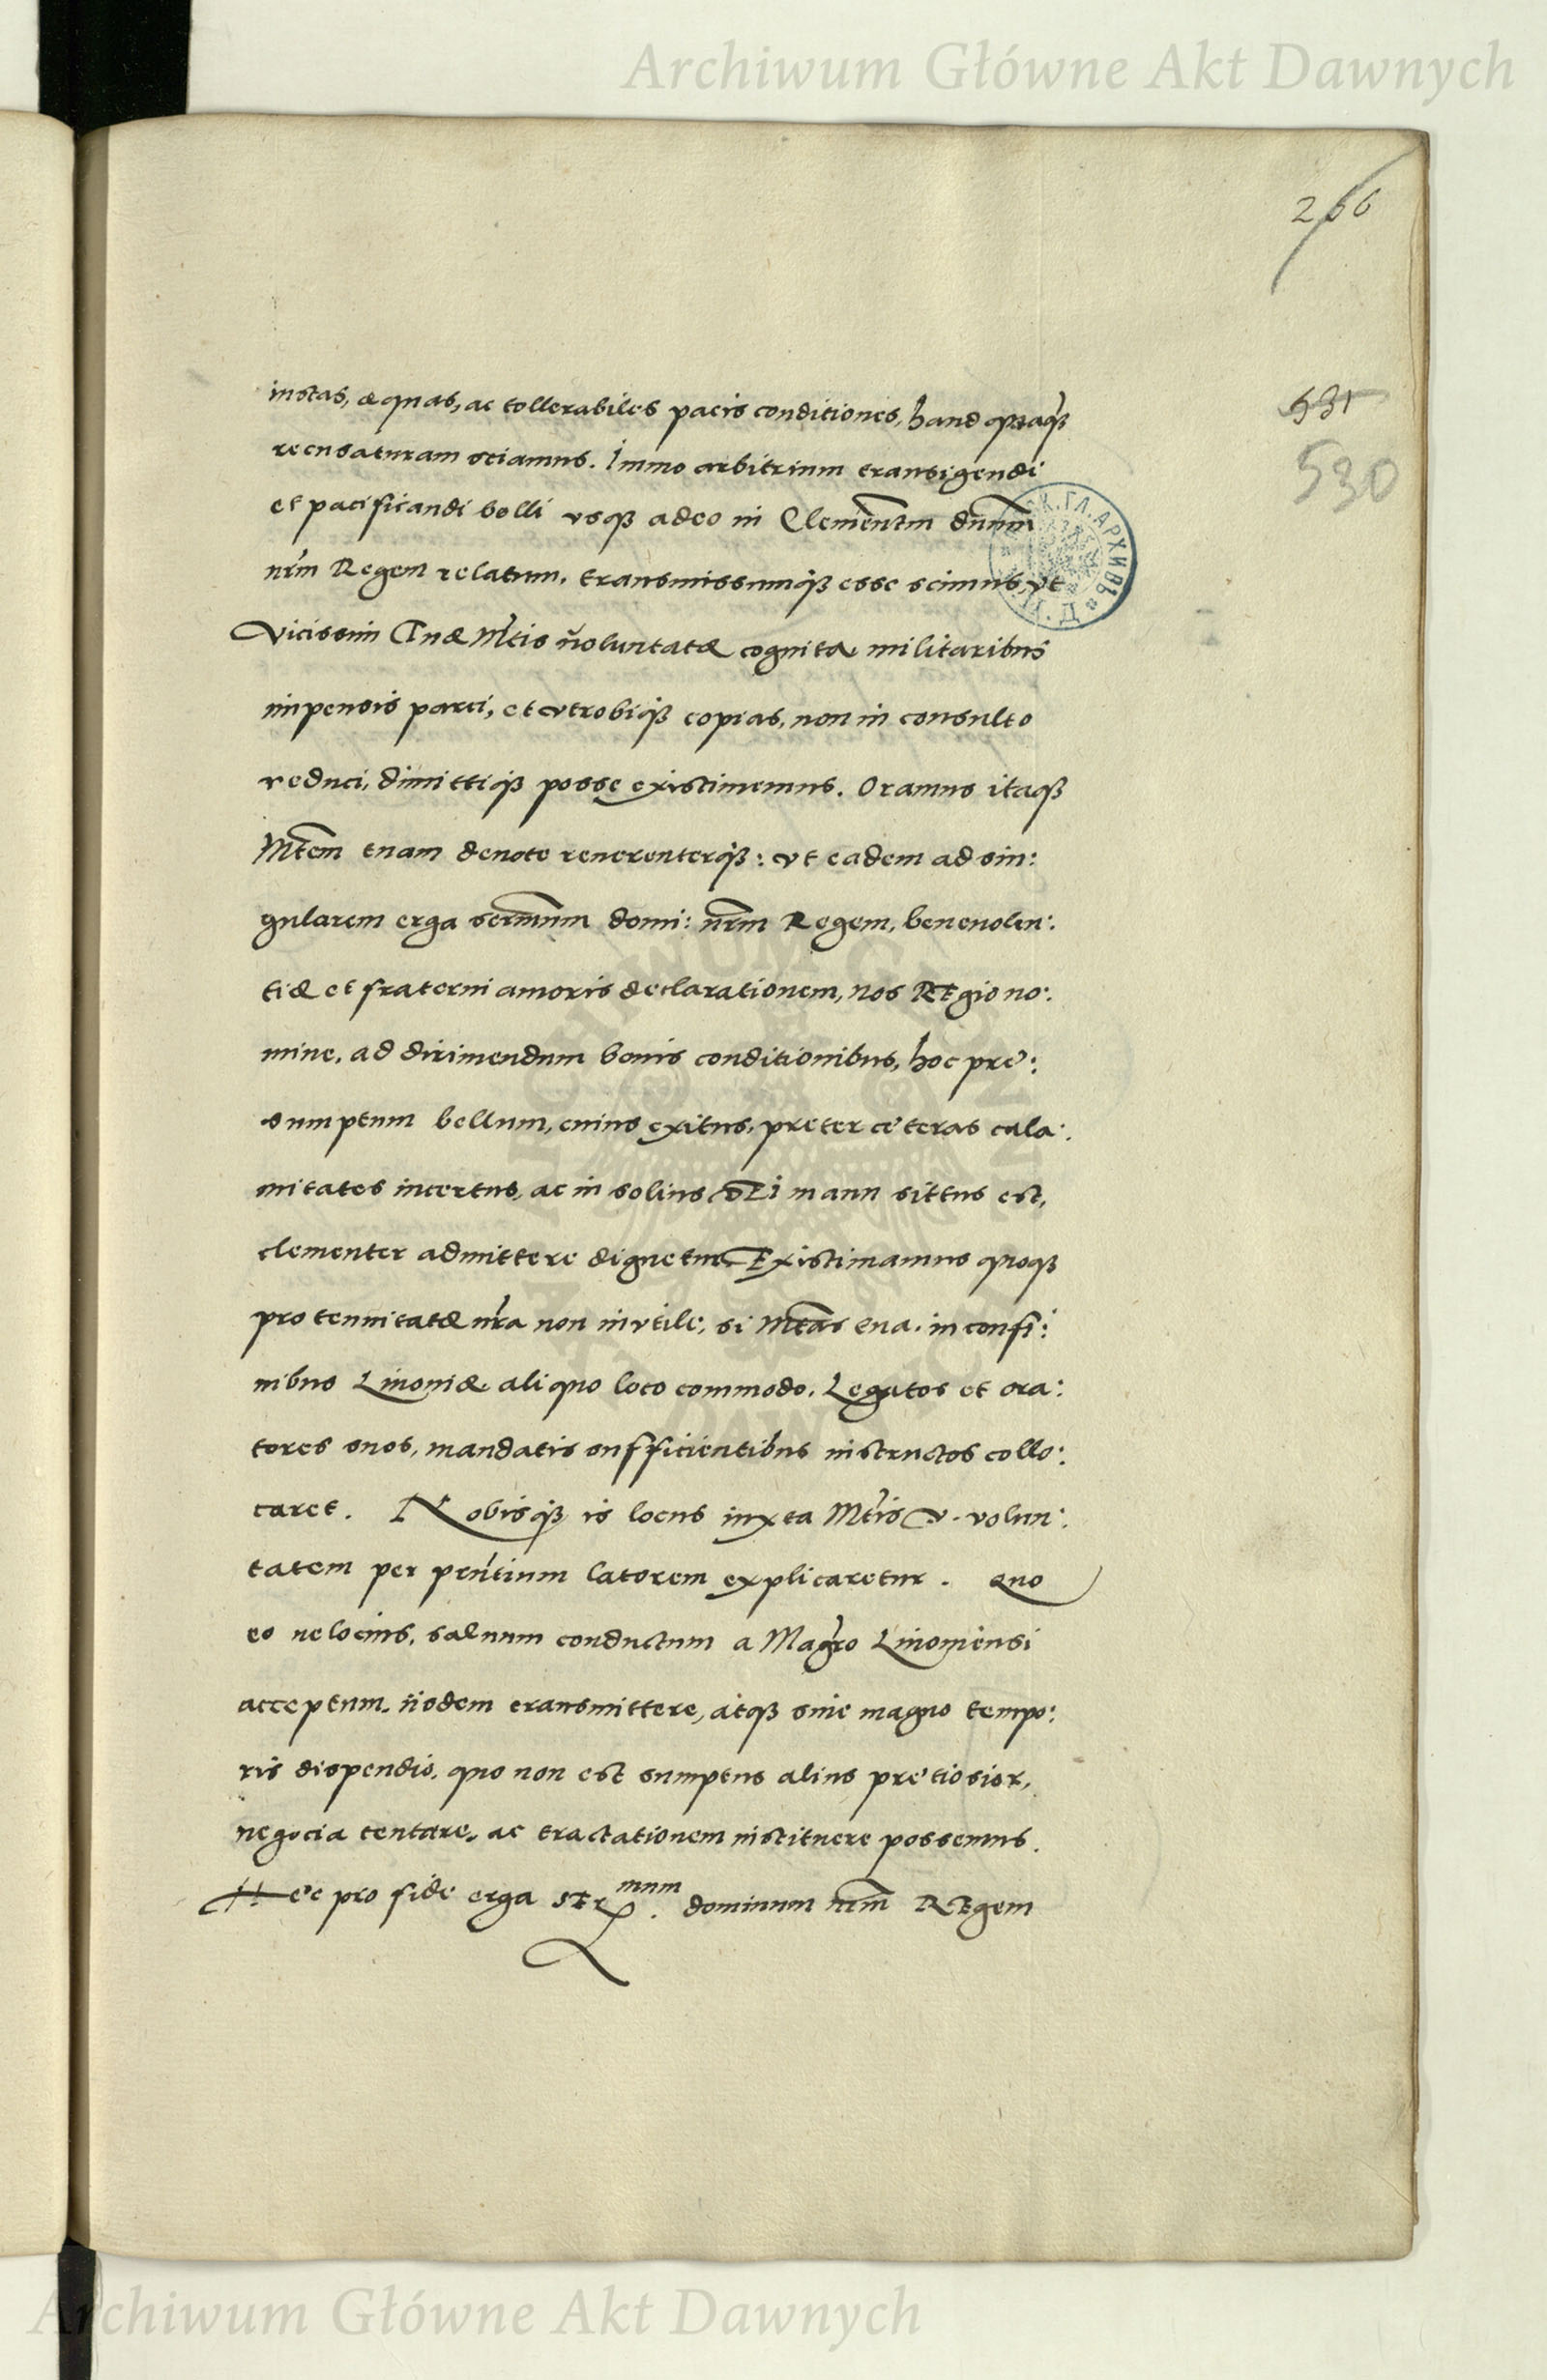 Archiwum Główne Akt Dawnych
266
531
530
iustas, æquas, ac tollerabiles pacis conditiones, haud
recusaturam sciamus. Immo arbitrium transigendi
et pacificandi belli vsqȝ adeo in Clementm dnum
nrm Regem relatum, transmissumqȝ esse scimus, vt
Vicissim Tuæ Mtis voluntatæ cognita militaribus
impensis parci, et vtrobiqȝ copias, non in consulto
reduci, dimittiqȝ posse existimemus. Oramus itaqȝ
Mtem tuam deuote reuerenterqȝ: vt eadem ad sin:
gularem erga sermum domi: nrm Regem, beneuolen:
tiæ et fraterni amoris declarationem, nos REgio no:
mine, ad dirimendum bonis conditionibus, hoc pre:
sumptum bellum, cuius exitus, preter ceteras cala:
mitates incertus, ac in solius DEi manu sittus est,
clementer admittere dignetur. Existimamus quoqȝ
pro tenuitatæ nra non invtile, si Mtas tua. in confi:
nibus Liuoniæ aliquo loco commodo, Legatos et ora:
tores suos, mandatis sufficientibus instructos collo:
caret. Nobisqȝ is locus iuxta Mtis v. volun:
tatem per prntium latorem explicaretur. Quo
eo uelocius, saluum conductum a Magro Liuoniensi
acceptum, iisdem transmittere, atqȝ sine magno tempo:
ris dispendio, quo non est sumptus alius pretiosior,
negocia tentare, ac tractationem instituere possemus.
Hec pro fide erga SEr mum dominum nrm REgem
Archiwum Główne Akt Dawnych